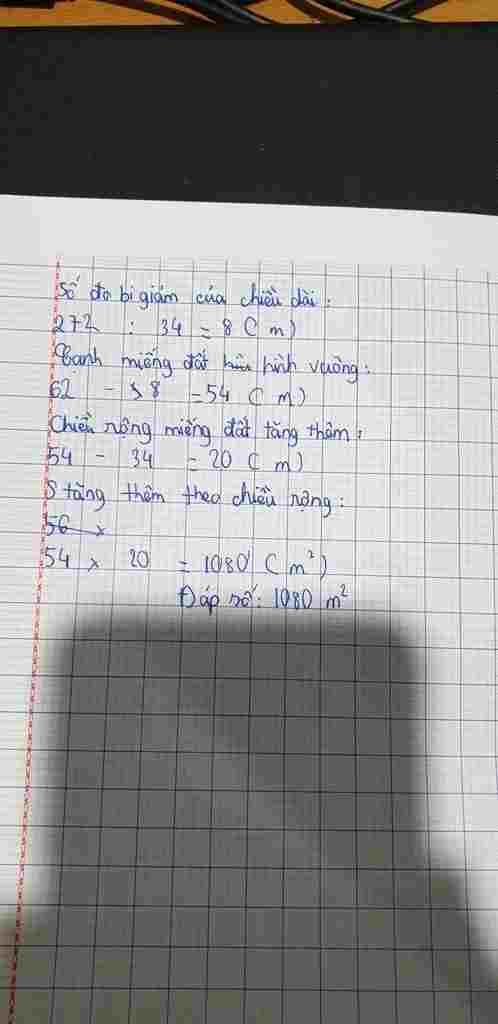 Số đo bị giảm của chiều dài:
272 : 34 = 8 ( m )
Cạnh miếng đất hình vuông:
62 - 8 = 54 ( m )
Chiều rộng miếng đất tăng thêm:
54 - 34 = 20 ( m )
S tăng thêm theo chiều rộng:
56 x
54 x 20 = 1080 ( m² )
Đáp số: 1080 m²